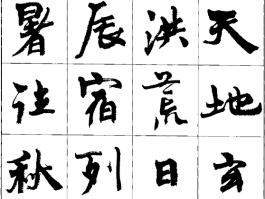 天地玄
洪荒日
辰宿列
暑往秋